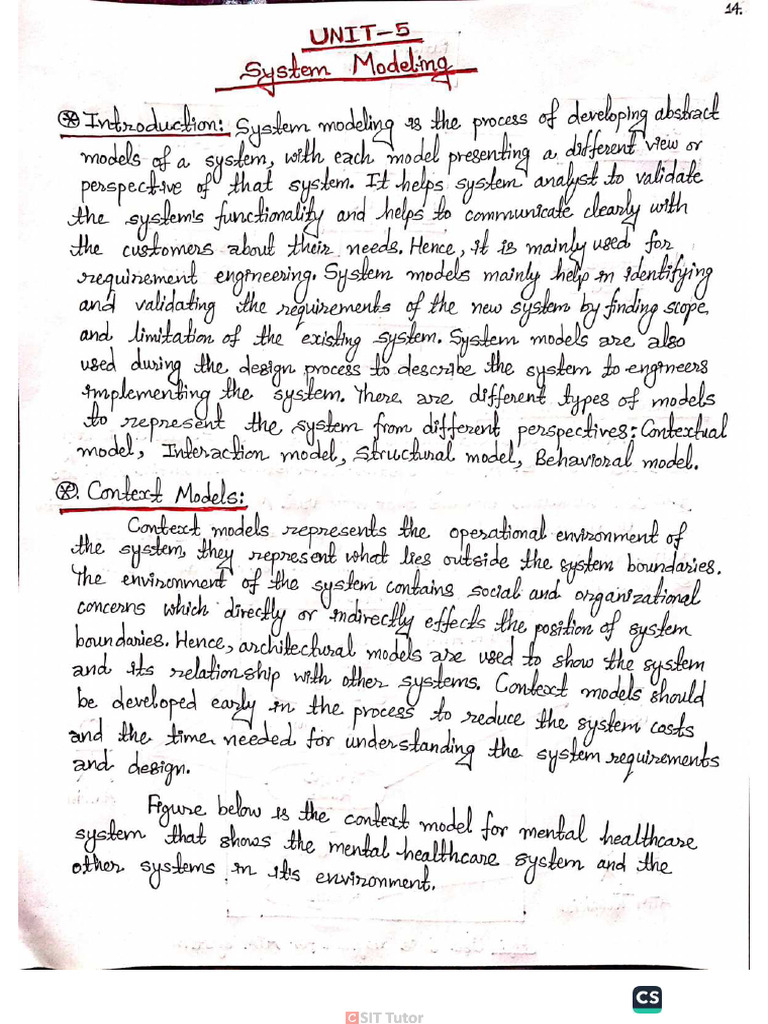 14.
UNIT-5
System Modeling
⊛ Introduction: System modeling is the process of developing abstract
models of a system, with each model presenting a different view or
perspective of that system. It helps system analyst to validate
the system's functionality and helps to communicate clearly with
the customers about their needs. Hence, it is mainly used for
requirement engineering. System models mainly help in identifying
and validating the requirements of the new system by finding scope
and limitation of the existing system. System models are also
used during the design process to describe the system to engineers
implementing the system. There are different types of models
to represent the system from different perspectives: Contextual
model, Interaction model, Structural model, Behavioral model.
⊛. Context Models:
Context models represents the operational environment of
the system, they represent what lies outside the system boundaries.
The environment of the system contains social and organizational
concerns which directly or indirectly effects the position of system
boundaries. Hence, architectural models are used to show the system
and its relationship with other systems. Context models should
be developed early in the process to reduce the system costs
and the time needed for understanding the system requirements
and design.
Figure below is the context model for mental healthcare
system that shows the mental healthcare system and the
other systems in it's environment.
CS
CSIT Tutor